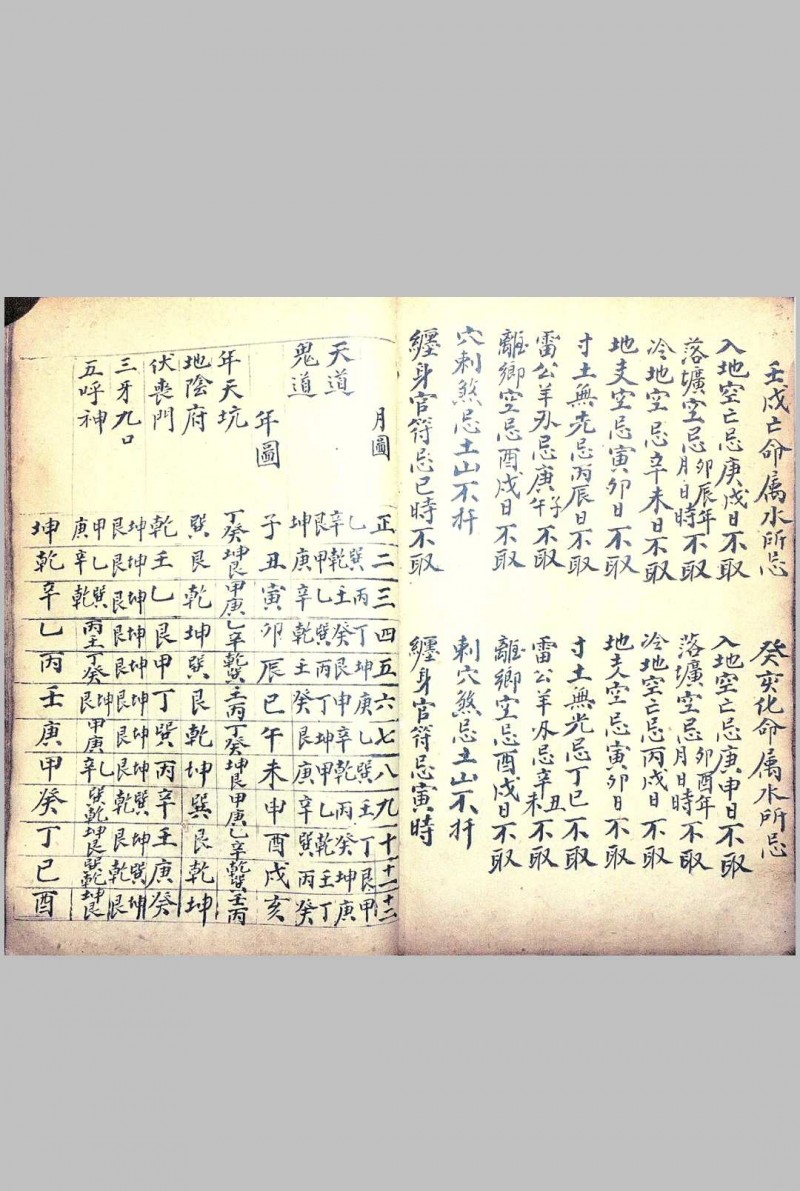 壬戌亡命属水所忌
入地空亡忌庚戌日不取
落壙空忌卯辰年月日時不取
冷地空忌辛未日不取
地支空忌寅卯日不取
寸土無光忌丙辰日不取
雷公羊刃忌庚子午日不取
離鄉空忌酉戌日不取
穴刺煞忌土山不扦
纏身官符忌巳時不取
癸亥化命属水所忌
入地空亡忌庚申日不取
落壙空忌卯酉年月日時不取
冷地空亡忌丙戌日不取
地支空忌寅卯日不取
寸土無光忌丁巳日不取
雷公羊刃忌辛丑未不取
離鄉空忌酉戌日不取
刺穴煞忌土山不扦
纏身官符忌寅時
月圖 正 二 三 四 五 六 七 八 九 十 十一 十二
天道 乙辛 巽乾 丙壬 丁癸 坤艮 庚甲 乙辛 巽乾 壬丙 丁癸 艮坤 甲庚
鬼道 艮坤 甲庚 乙辛 巽乾 丙壬 丁癸 坤艮 甲庚 乙辛 乾巽 壬丙 丁癸
年圖 子 丑 寅 卯 辰 巳 午 未 申 酉 戌 亥
年天坑 丁癸 坤艮 甲庚 乙辛 乾巽 壬丙 丁癸 坤艮 甲庚 乙辛 乾巽 壬丙
地陰府 巽 艮 乾 坤 巽 艮 乾 坤 巽 艮 乾 坤
伏喪門 乾 壬 乙 艮 甲 丁 巽 丙 辛 壬 庚 癸
三牙九口 坤艮 坤艮 坤艮 坤艮 坤艮 坤艮 坤艮 坤艮 巽乾 坤艮 巽乾 坤艮
五呼神 甲庚 乙辛 巽乾 丙壬 丁癸 坤艮 甲庚 乙辛 巽乾 坤艮 巽乾 坤艮
坤 乾 辛 乙 丙 壬 庚 甲 癸 丁 巳 酉